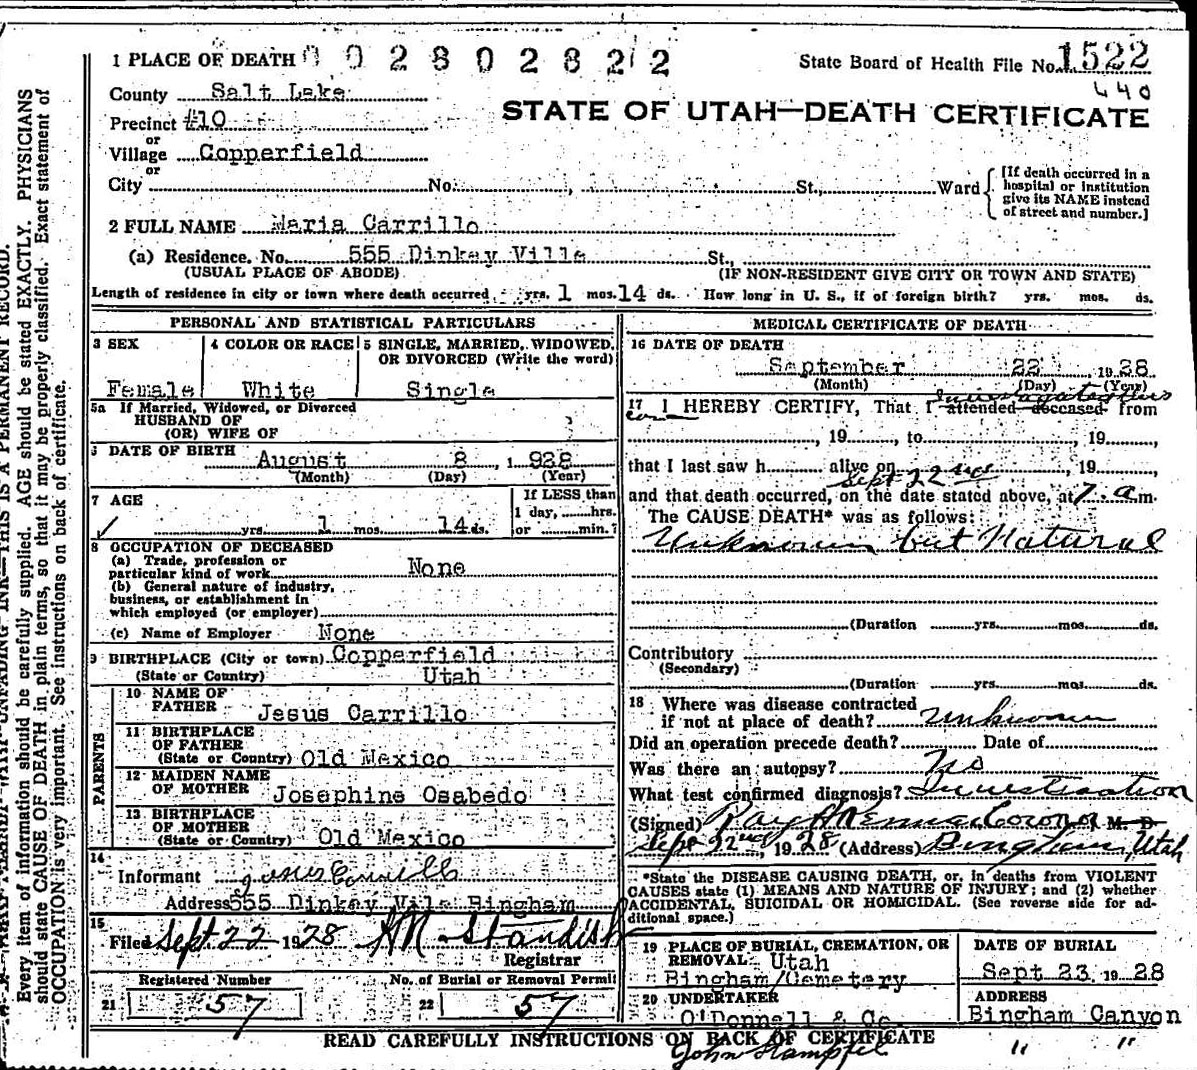 1 PLACE OF DEATH 0 0 2 8 0 2 8 2 2 State Board of Health File No. 1522
County Salt Lake 440
STATE OF UTAH—DEATH CERTIFICATE
Precinct #10
or
Village Copperfield
or
City No. , St., Ward
[If death occurred in a
hospital or institution
give its NAME instead
of street and number.]
2 FULL NAME Maria Carrillo
(a) Residence. No. 555 Dinkey Ville St.,
(USUAL PLACE OF ABODE) (IF NON-RESIDENT GIVE CITY OR TOWN AND STATE)
Length of residence in city or town where death occurred yrs. 1 mos. 14 ds. How long in U. S., if of foreign birth? yrs. mos. ds.
PERSONAL AND STATISTICAL PARTICULARS
3 SEX
Female
4 COLOR OR RACE
White
5 SINGLE, MARRIED, WIDOWED,
OR DIVORCED (Write the word)
Single
5a If Married, Widowed, or Divorced
HUSBAND OF
(OR) WIFE OF
6 DATE OF BIRTH
August 8, 1928
(Month) (Day) (Year)
7 AGE
yrs. 1 mos. 14 ds.
If LESS than
1 day, hrs.
or min.?
8 OCCUPATION OF DECEASED
(a) Trade, profession or
particular kind of work None
(b) General nature of industry,
business, or establishment in
which employed (or employer)
(c) Name of Employer None
9 BIRTHPLACE (City or town) Copperfield
(State or Country) Utah
PARENTS
10 NAME OF
FATHER Jesus Carrillo
11 BIRTHPLACE
OF FATHER
(State or Country) Old Mexico
12 MAIDEN NAME
OF MOTHER Josephine Osabedo
13 BIRTHPLACE
OF MOTHER
(State or Country) Old Mexico
14
Informant Jesus Carrillo
Address 555 Dinkey Vile Bingham
15
Filed Sept. 22 1928 HN Standish
Registrar
Registered Number No. of Burial or Removal Permit
21 57 22 57
MEDICAL CERTIFICATE OF DEATH
16 DATE OF DEATH
September 22, 1928
(Month) (Day) (Year)
17 I HEREBY CERTIFY, That I attended deceased from
, 19 , to , 19 ,
that I last saw h alive on , 19 ,
Sept 22 nd
and that death occurred, on the date stated above, at 7. a m.
The CAUSE DEATH* was as follows:
Unknown but Natural
(Duration yrs. mos. ds.
Contributory
(Secondary)
(Duration yrs. mos. ds.
18 Where was disease contracted
if not at place of death? unknown
Did an operation precede death? Date of
Was there an autopsy? No
What test confirmed diagnosis? Investigation
(Signed) Coroner M. D.
Sept 22nd, 1928 (Address) Bingham, Utah
*State the DISEASE CAUSING DEATH, or, in deaths from VIOLENT
CAUSES state (1) MEANS AND NATURE OF INJURY; and (2) whether
ACCIDENTAL, SUICIDAL OR HOMICIDAL. (See reverse side for ad-
ditional space.)
19 PLACE OF BURIAL, CREMATION, OR
REMOVAL Utah
Bingham/Cemetery
DATE OF BURIAL
Sept 23 1928
20 UNDERTAKER
O'Donnell & Co.
John Stampfel
ADDRESS
Bingham Canyon
" "
READ CAREFULLY INSTRUCTIONS ON BACK OF CERTIFICATE
Every item of information should be carefully supplied. AGE should be stated EXACTLY. PHYSICIANS
should state CAUSE OF DEATH in plain terms, so that it may be properly classified. Exact statement of
OCCUPATION is very important. See instructions on back of certificate.
UNFADING INK—THIS IS A PERMANENT RECORD.